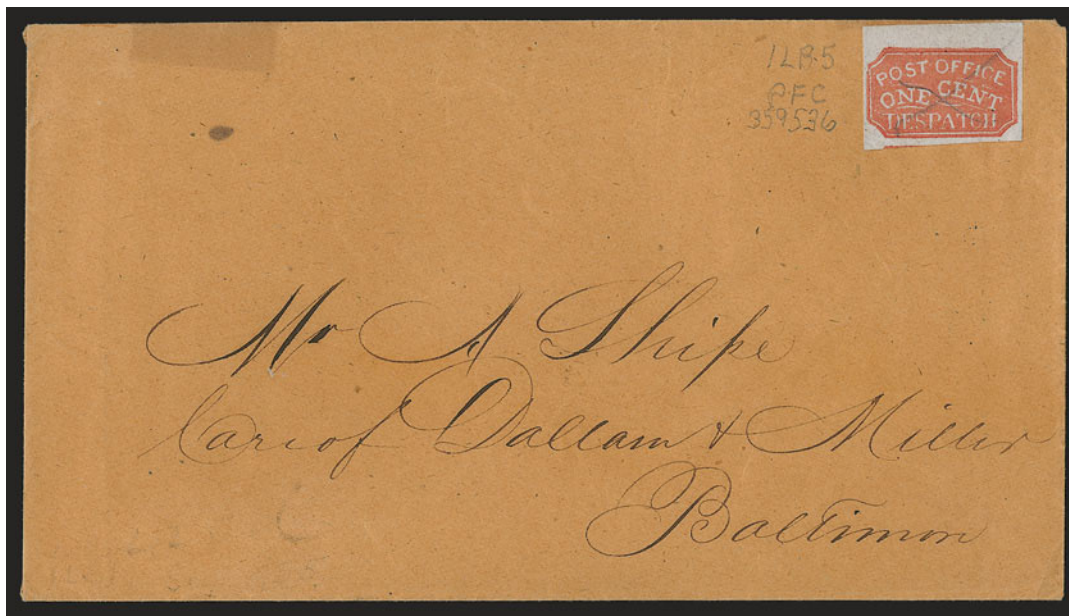 1LB5
PFC
359536
POST OFFICE
ONE CENT
DESPATCH
Mr A Shipe
Care of Dallam & Miller
Baltimore